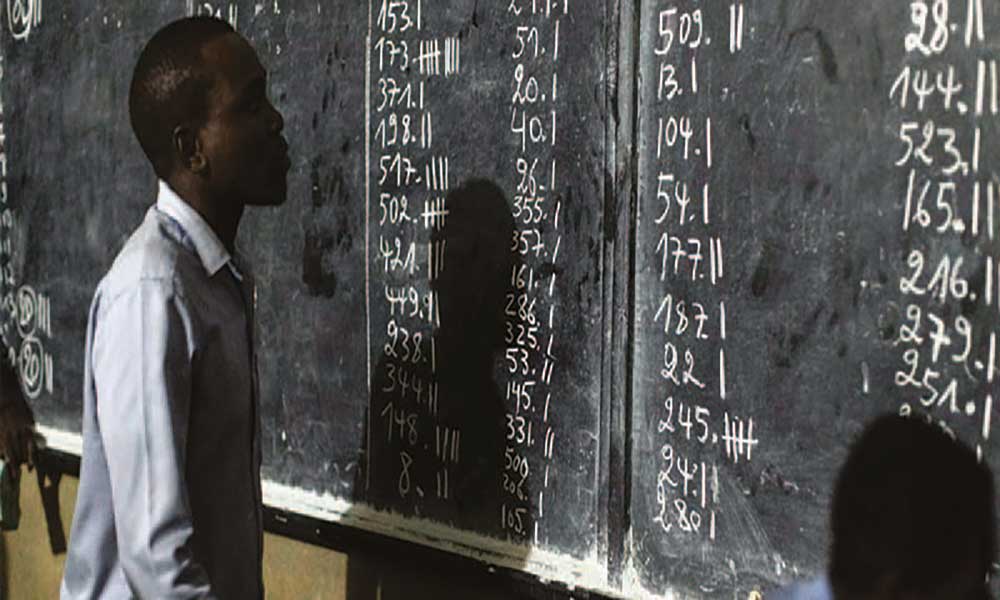 153. |
173. 卌 ||||
371. |
198. ||
517. ||||
502. 卌
421. |||
449. 9|
238. |
344. ||
148. ||||
8. ||
51. |
20. |
40. |
26. |
355. |
357. |
161. |
286. |
325. |
53. ||
145. |
331. ||
500. |
206.
105. |
509. ||
13. |
104. |
54. |
177. ||
187. |
22 |
245. 卌
24. ||
280 |
28. ||
144. |||
523. |
165. ||
216. ||
279. |
251. |